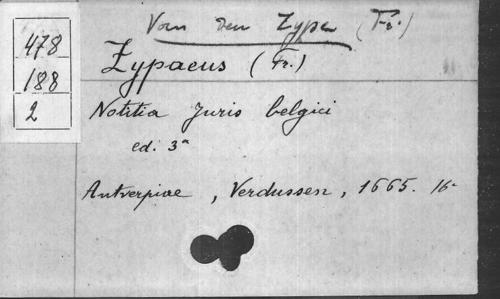 Van den Zype (Fr.)
478
188
2
Zypaeus (Fr.)
Notitia Juris belgici
ed. 3a
Antverpiae, Verdussen, 1665. 16°